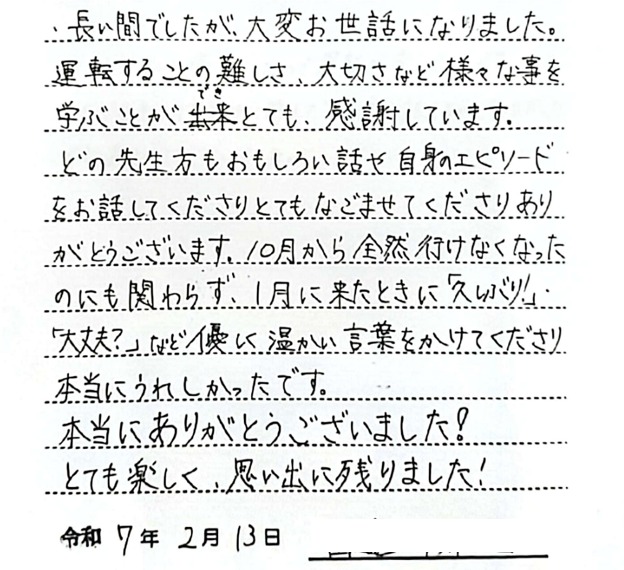 、長い間でしたが、大変お世話になりました。
運転することの難しさ、大切さなど様々な事を
学ぶことが出来とても、感謝しています。
でき
どの先生方もおもしろい話や自身のエピソード
をお話してくださりとてもなごませてくださりあり
がとうございます。10月から全然行けなくなった
のにも関わらず、1月に来たときに「久しぶり!」・
「大丈夫?」など優しく温かい言葉をかけてくださり
本当にうれしかったです。
本当にありがとうございました!
とても楽しく、思い出に残りました!
令和 7年 2月 13日